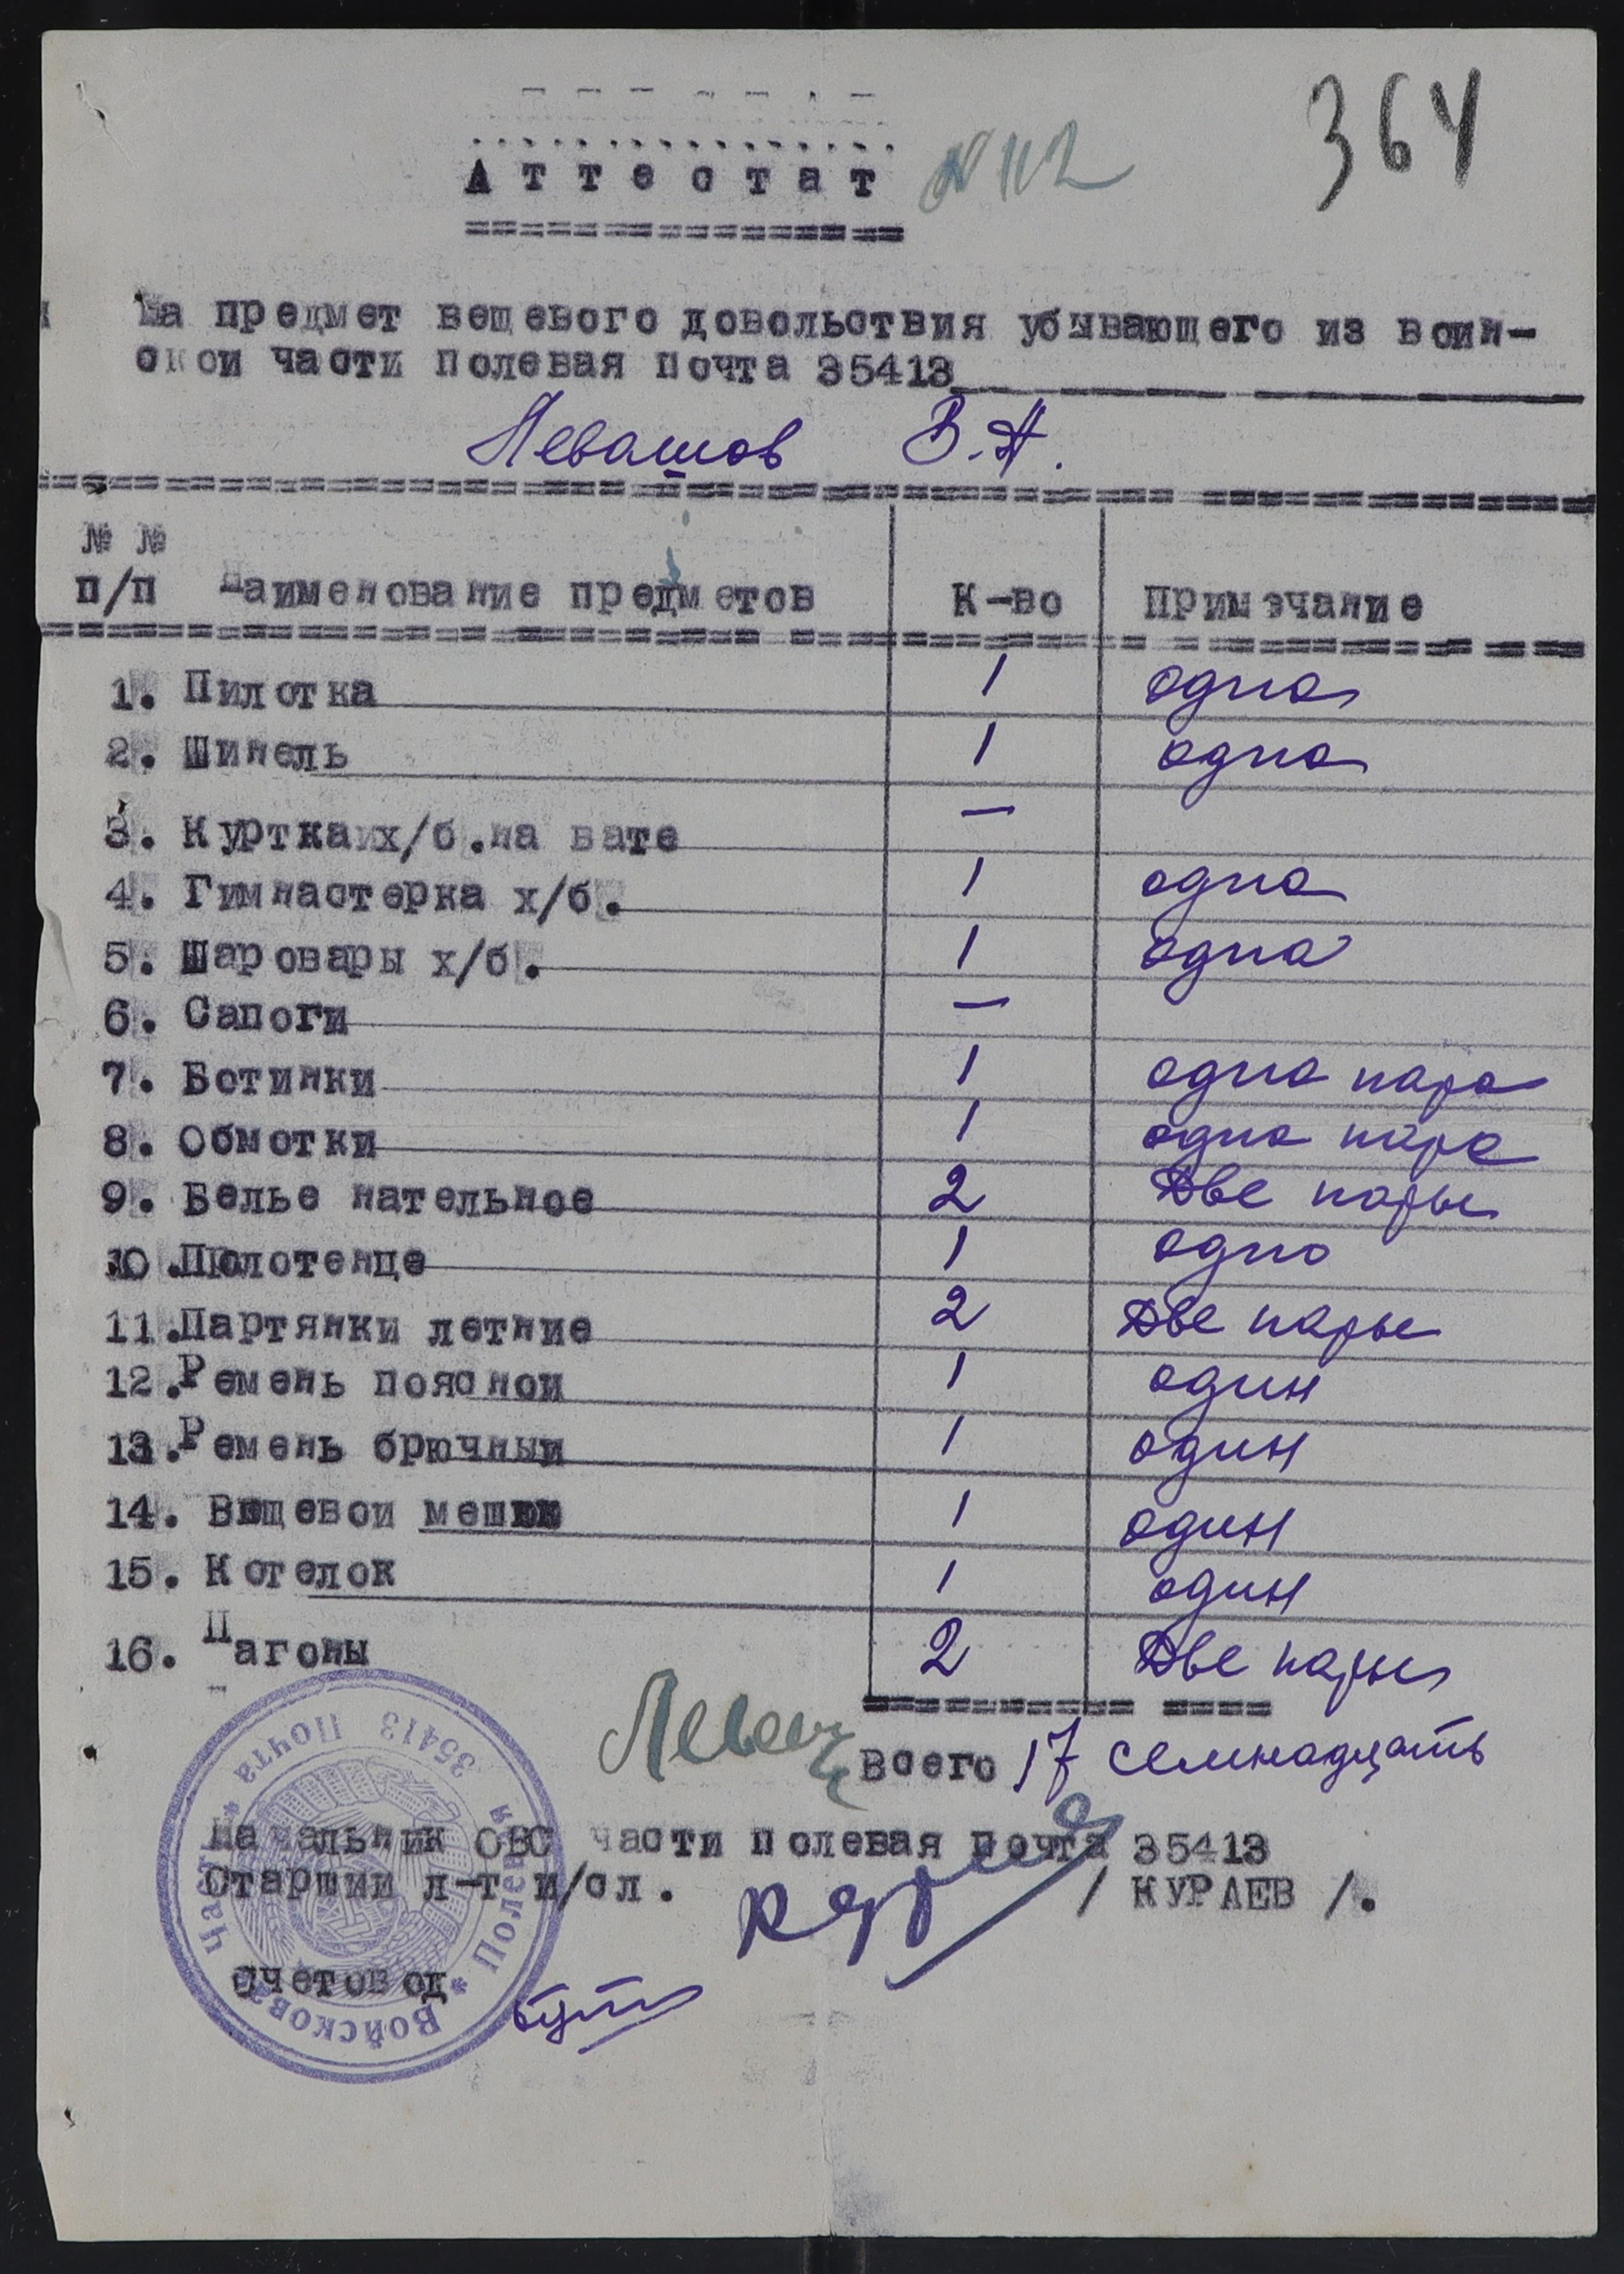 364
Аттестат №112
На предмет вещевого довольствия убывающего из воин-
ской части полевая почта 35413
Левашов В.А.
№ №
п/п Наименование предметов К-во Примечание
1. Пилотка 1 одна
2. Шинель 1 одна
3. Куртка х/б.на вате —
4. Гимнастерка х/б. 1 одна
5. Шаровары х/б. 1 одна
6. Сапоги —
7. Ботинки 1 одна пара
8. Обмотки 1 одна пара
9. Белье нательное 2 Две пары
10.Полотенце 1 одно
11.Партянки летние 2 Две пары
12.Ремень поясной 1 один
13.Ремень брючный 1 один
14. Вещевой мешок 1 один
15. Котелок 1 один
16. Пагоны 2 Две пары
Всего 17 семнадцать
Начальник ОВС части полевая почта 35413
Старший л-т и/сл. / КУРАЕВ /.
Счетовод
Войсковая Часть * Полевая Почта 35413